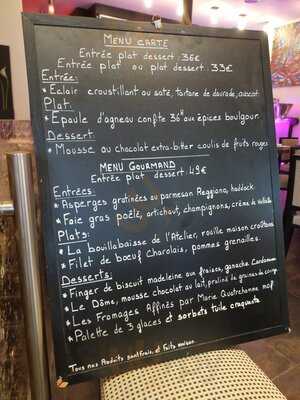 MENU CARTE
Entrée plat dessert : 36€
Entrée plat ou plat dessert : 33€
Entrée:
* Eclair croustillant au saté, tartare de daurade, avocat.
Plat:
* Epaule d'agneau confite 36H aux épices boulgour.
Dessert:
* Mousse au chocolat extra-bitter coulis de fruits rouges
MENU GOURMAND
Entrée plat dessert : 49€
Entrées:
* Asperges gratinées au parmesan Reggiano, haddock.
* Foie gras poêlé, artichaut, champignons, crème de
Plats:
* La bouillabaisse de l'Atelier, rouille maison croûtons
* Filet de boeuf Charolais, pommes grenailles.
Desserts:
* Finger de biscuit madeleine aux fraises, ganache Cardamome
* Le Dôme, mousse chocolat au lait, praliné de graines de courge
* Les Fromages Affinés par Marie Quatrehomme MOF
* Palette de 3 glaces et sorbets tuile craquante
Tous nos Produits sont Frais, et Faits maison.